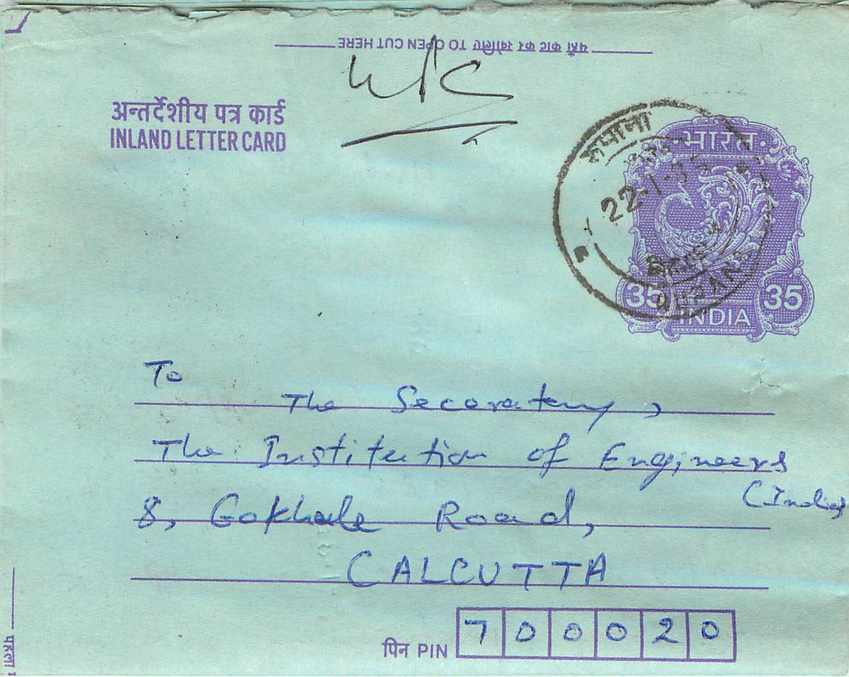 यहाँ काट कर खोलिए TO OPEN CUT HERE
अन्तर्देशीय पत्र कार्ड
INLAND LETTER CARD
भारत
रुपाना
22-1-
RUPANA
35 35
INDIA
To
The Secoratery,
The Institution of Engineers
(India)
8, Gokhale Road,
CALCUTTA
पिन PIN 700020
पहला